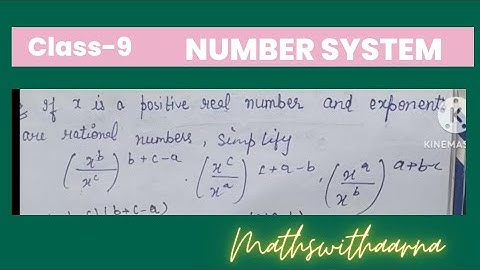 Class-9 NUMBER SYSTEM
If x is a positive real number and exponents
are rational numbers, simplify
(x^b/x^c)^b+c-a . (x^c/x^a)^c+a-b . (x^a/x^b)^a+b-c
(b+c-a)
KINEMAS
Mathswithaarna